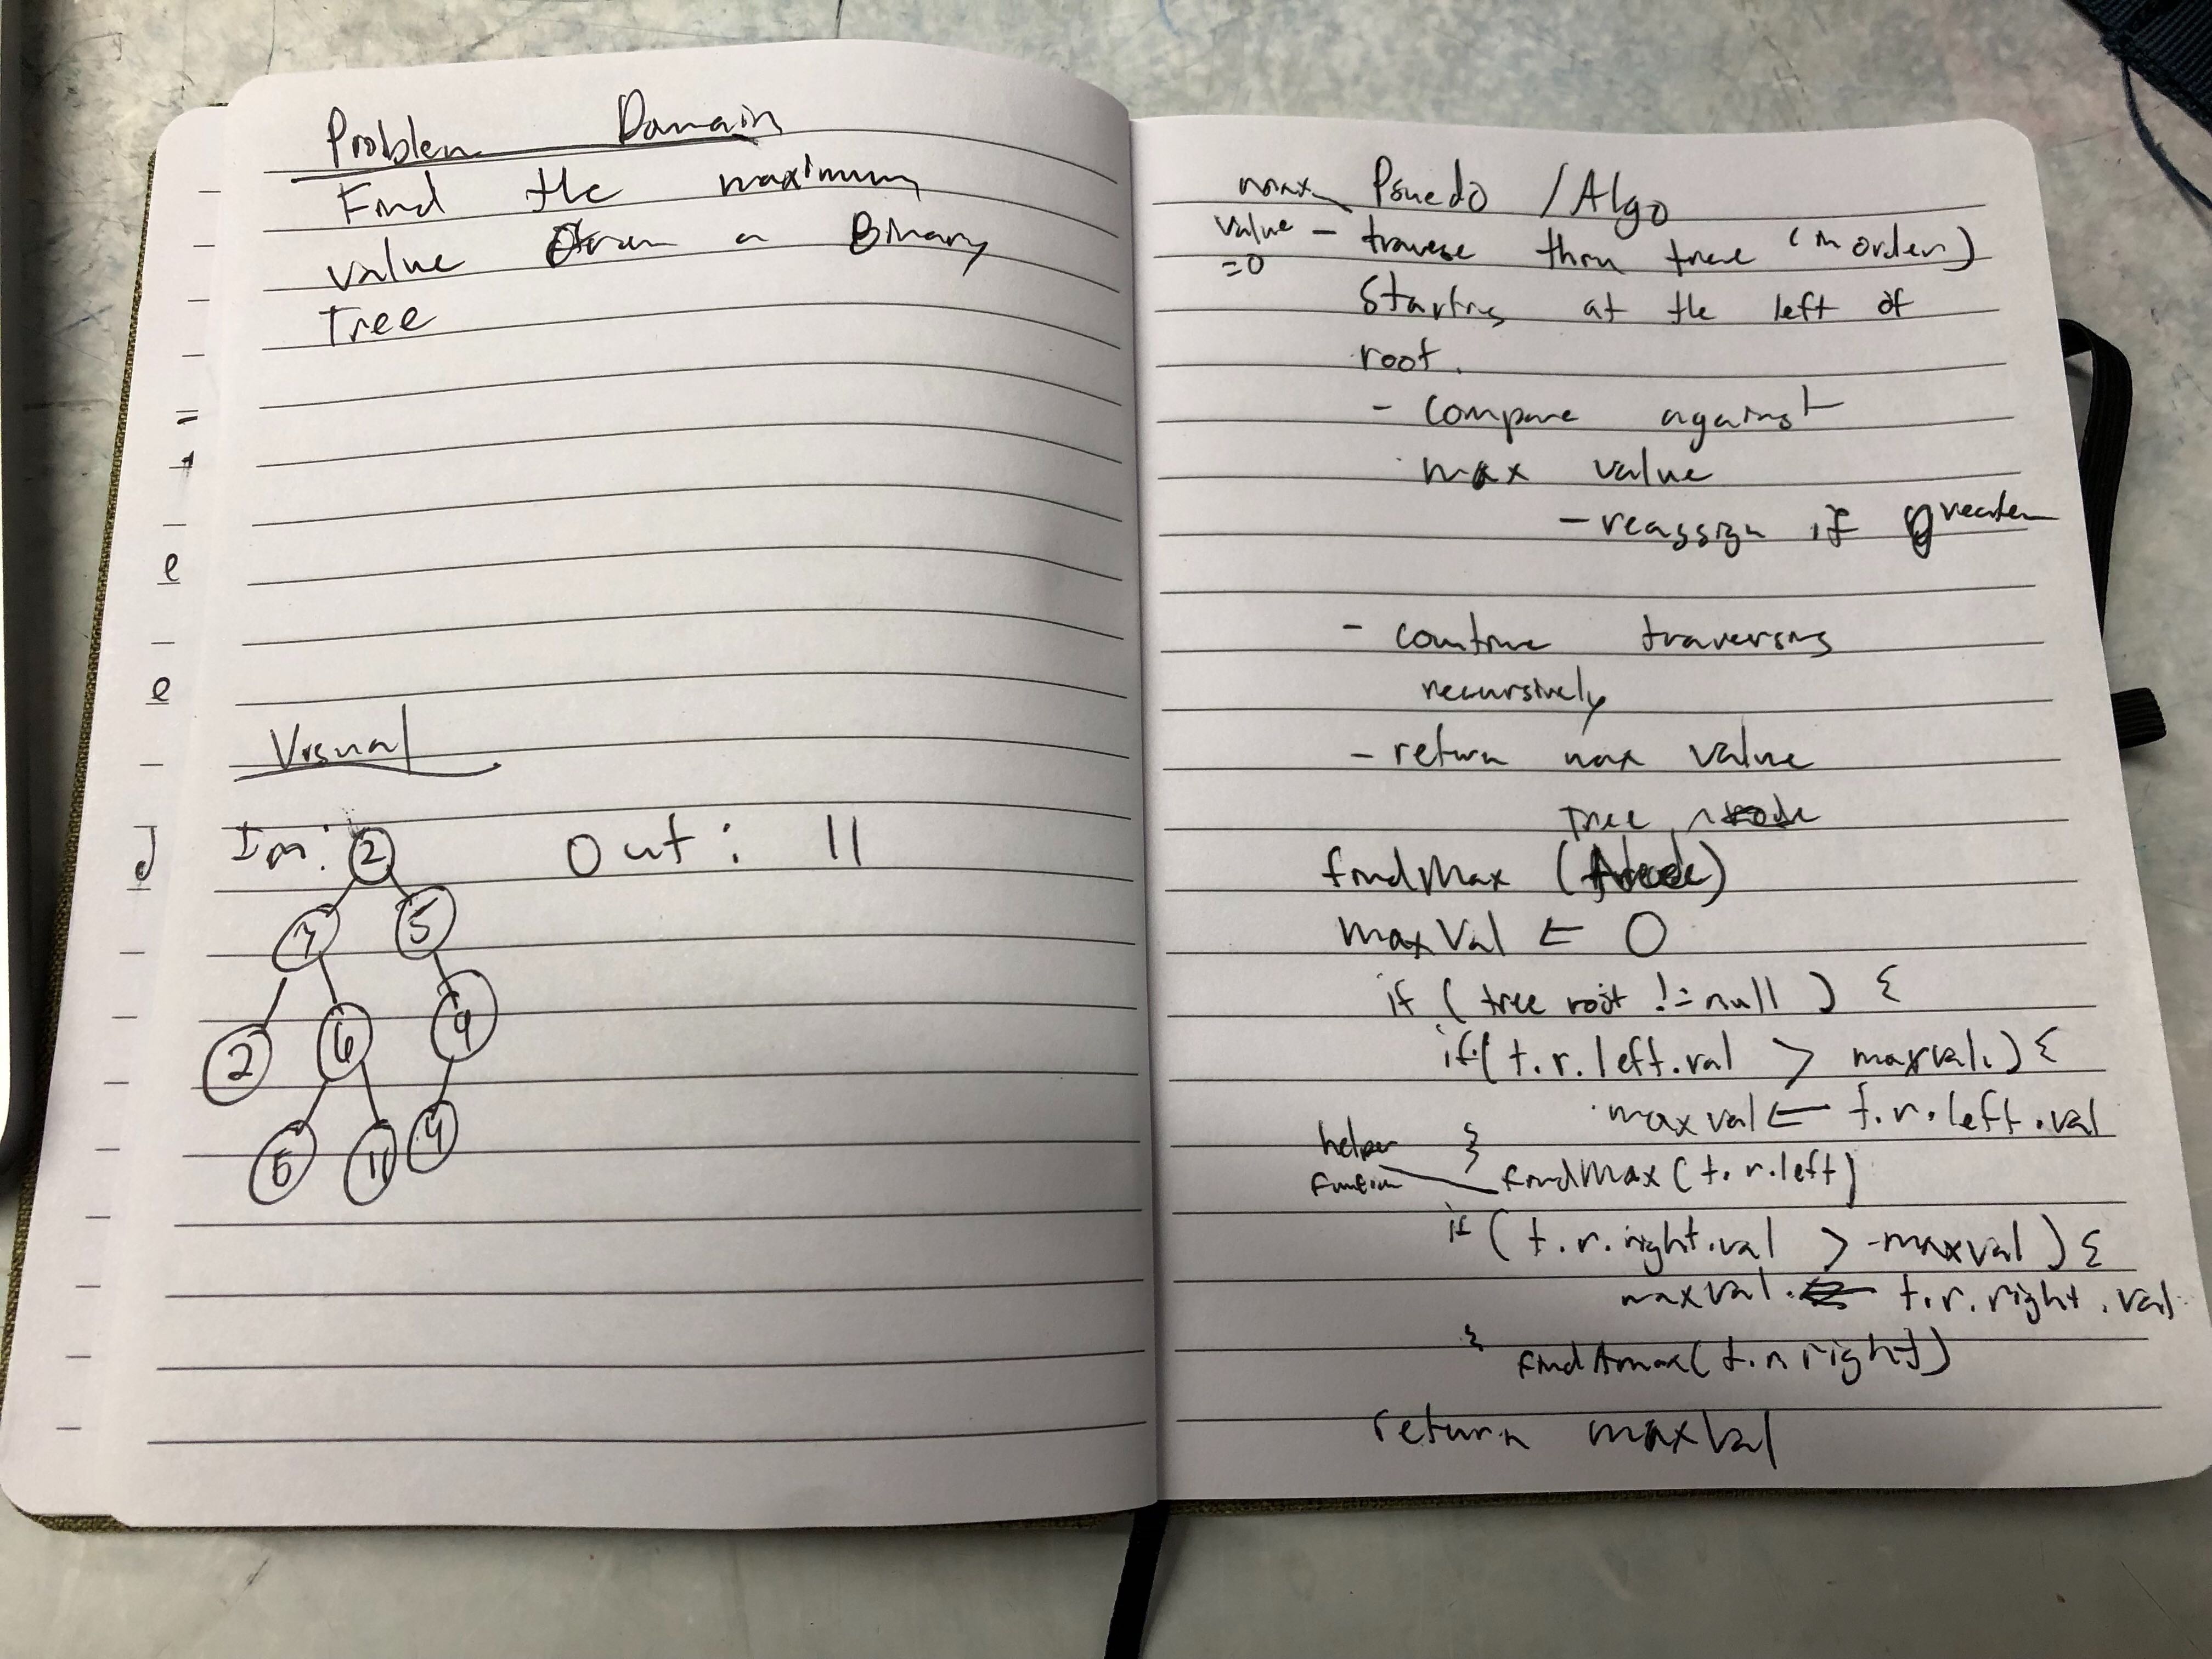 Problem Domain
Find the maximum
value from a Binary
Tree
Visual
In: Out: 11
2
7 5
2 6 9
5 11 4
max Psuedo / Algo
value - traverse thru tree (in order)
=0
starting at the left of
root.
- compare against
max value
- reassign if greater
- continue traversing
recursively
- return max value
Tree node
findMax ( )
maxVal ← 0
if ( tree root != null ) {
if( t.r.left.val > maxval ) {
maxval ← t.r.left.val
helper }
function findMax ( t.r.left )
if ( t.r.right.val > maxval ) {
maxval ← t.r.right.val
} findMax( t.r.right )
return maxVal